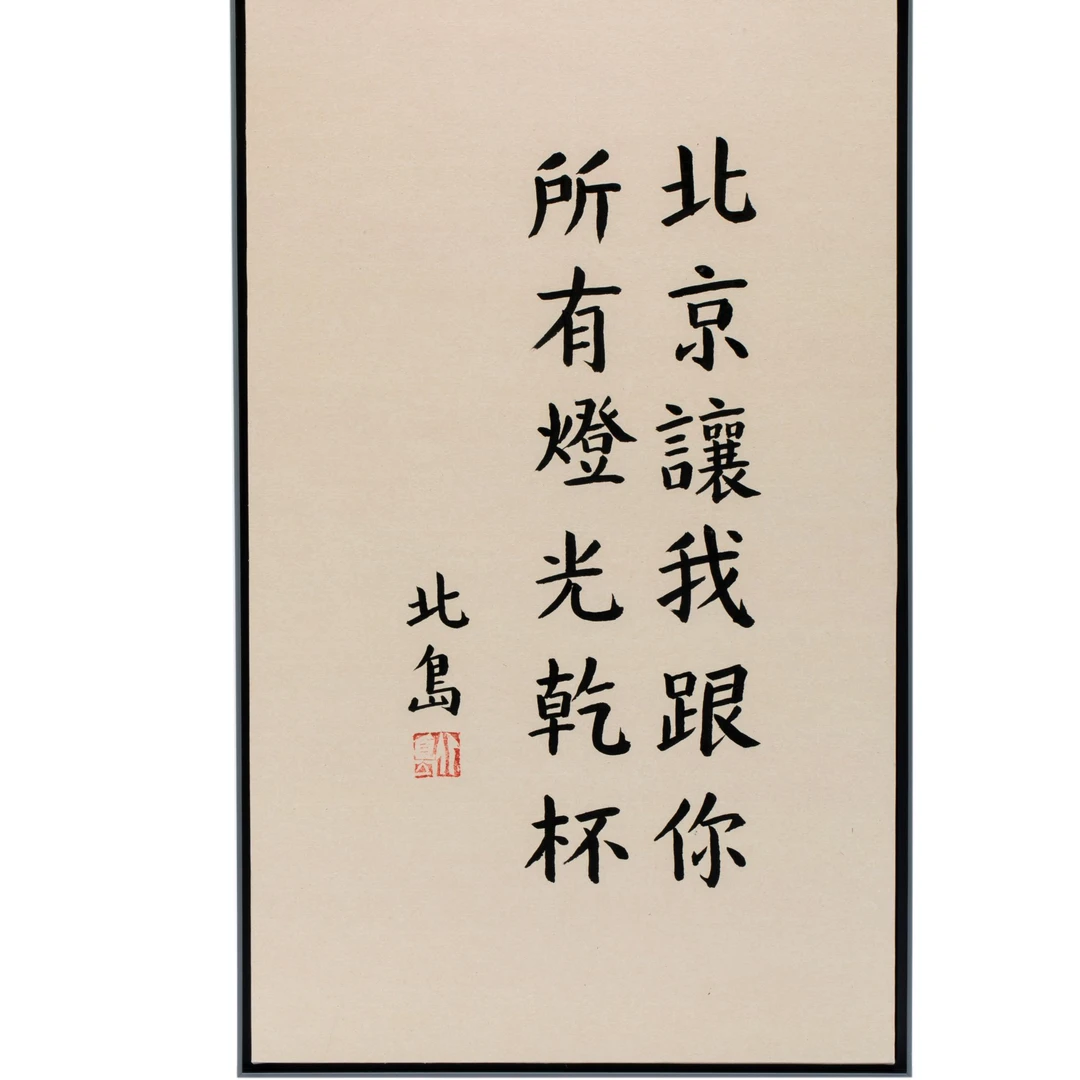 北京讓我跟你
所有燈光乾杯
北島
北島